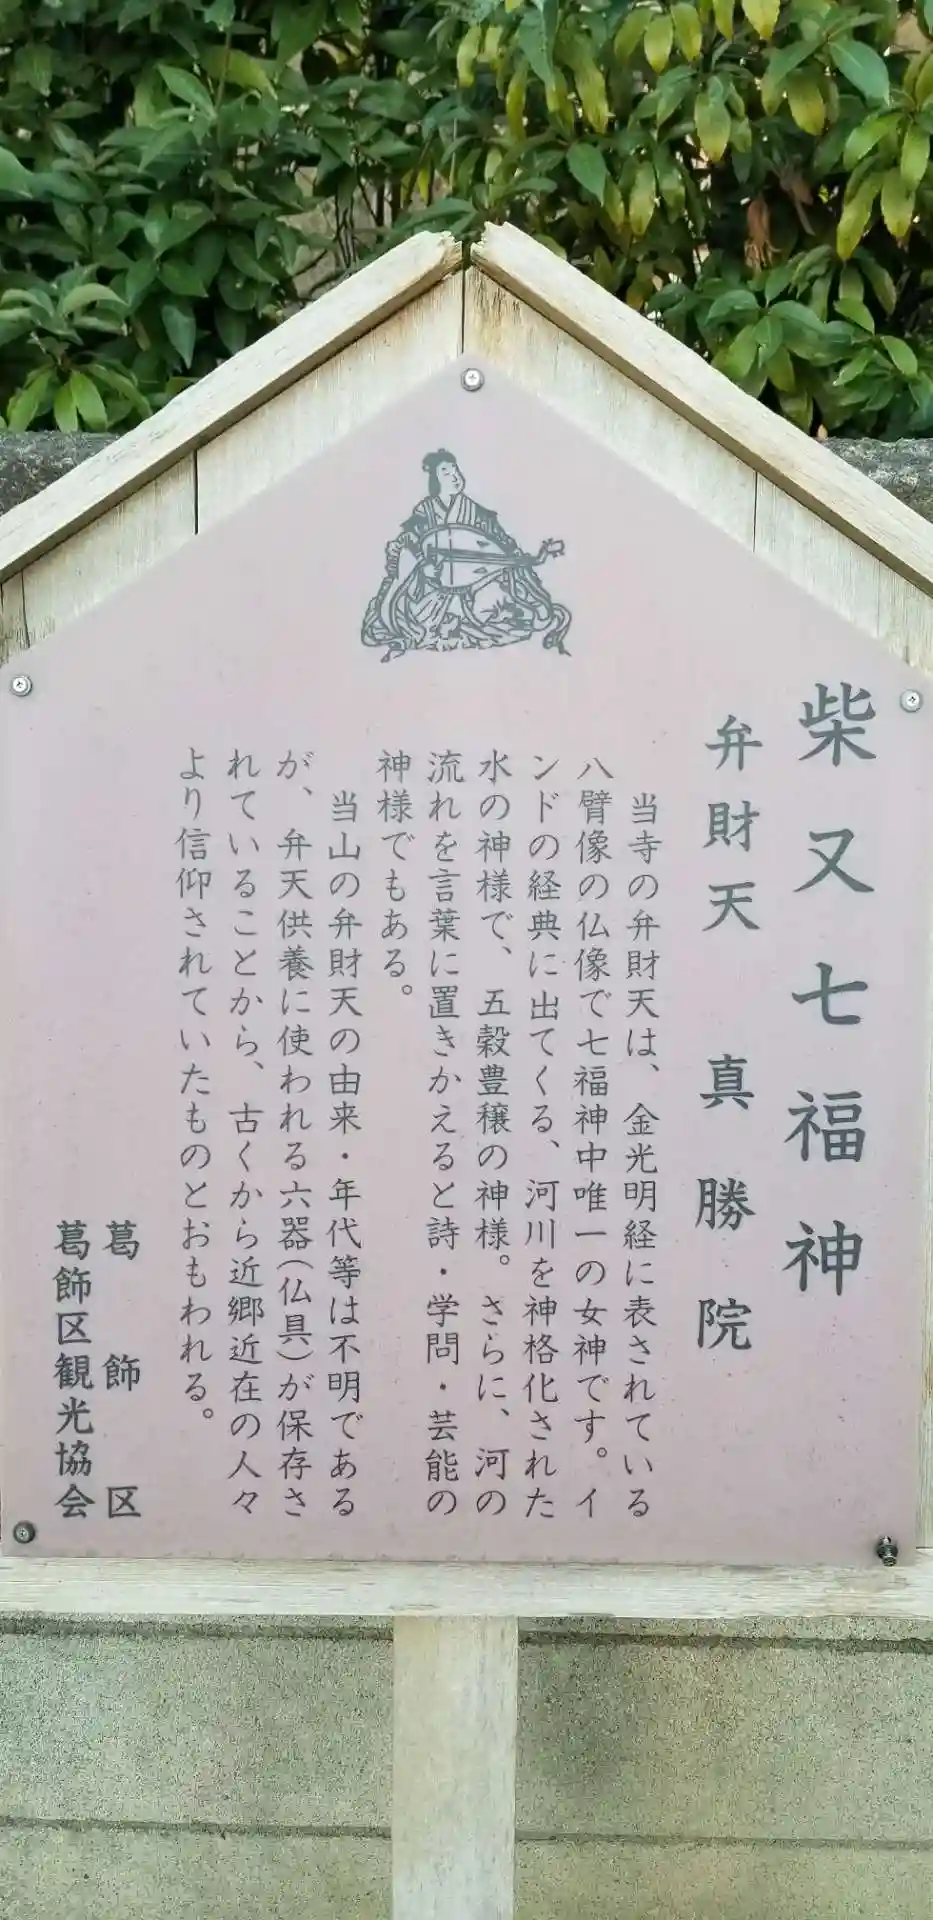 柴又七福神
弁財天 真勝院
当寺の弁財天は、金光明経に表されている
八臂像の仏像で七福神中唯一の女神です。イ
ンドの経典に出てくる、河川を神格化された
水の神様で、五穀豊穣の神様。さらに、河の
流れを言葉に置きかえると詩・学問・芸能の
神様でもある。
当山の弁財天の由来・年代等は不明である
が、弁天供養に使われる六器(仏具)が保存さ
れていることから、古くから近郷近在の人々
より信仰されていたものとおもわれる。
葛飾区
葛飾区観光協会